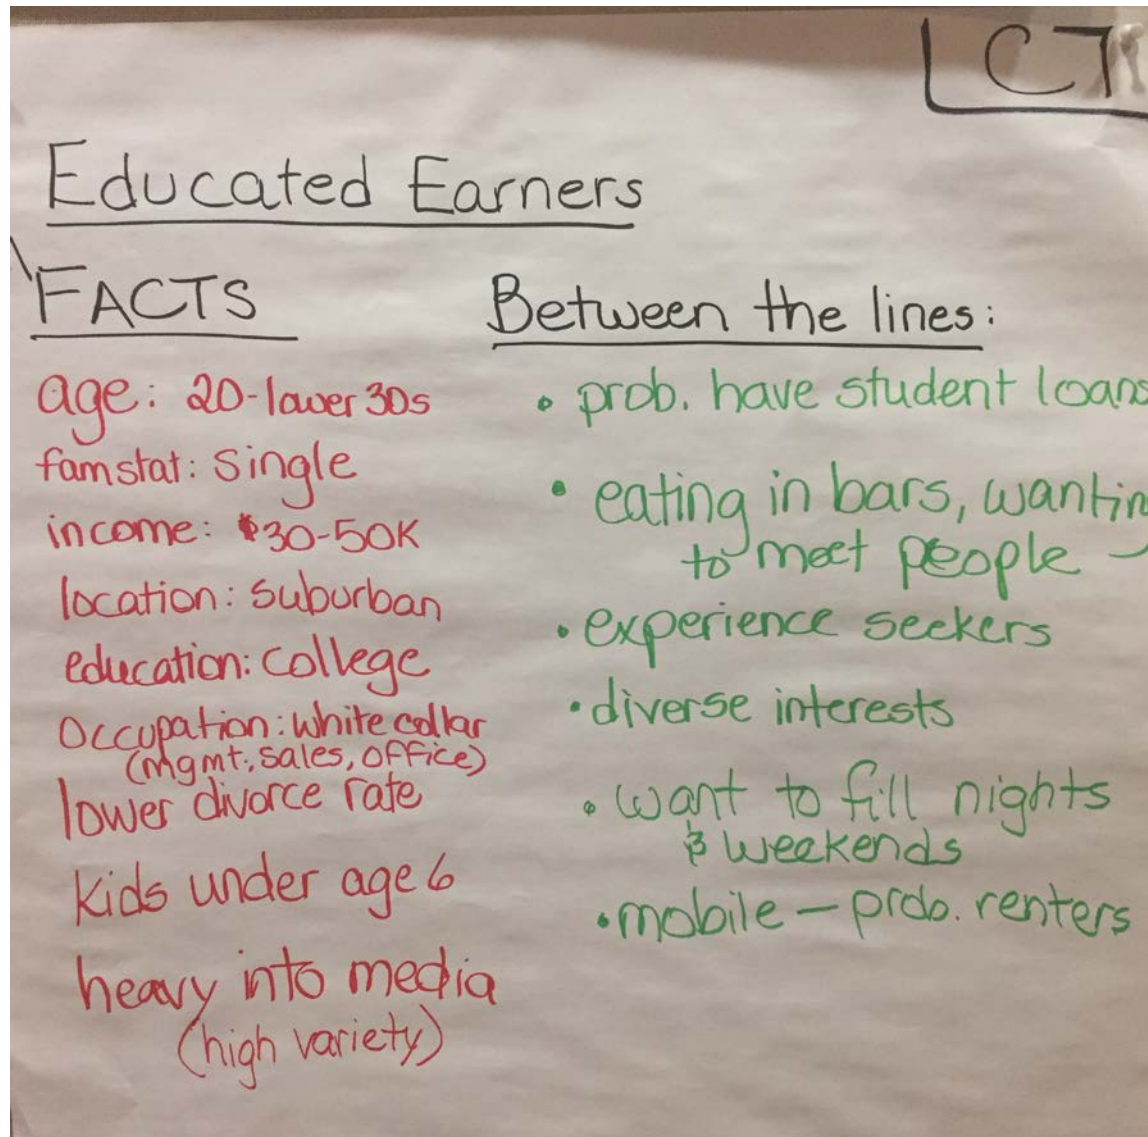 CT
Educated Earners
FACTS
age: 20-lower 30s
famstat: single
income: $30-50K
location: suburban
education: college
Occupation: white collar
(mgmt., sales, office)
lower divorce rate
Kids under age 6
heavy into media
(high variety)
Between the lines:
• prob. have student loans
• eating in bars, wantin
to meet people
• experience seekers
• diverse interests
• want to fill nights
& weekends
• mobile – prob. renters